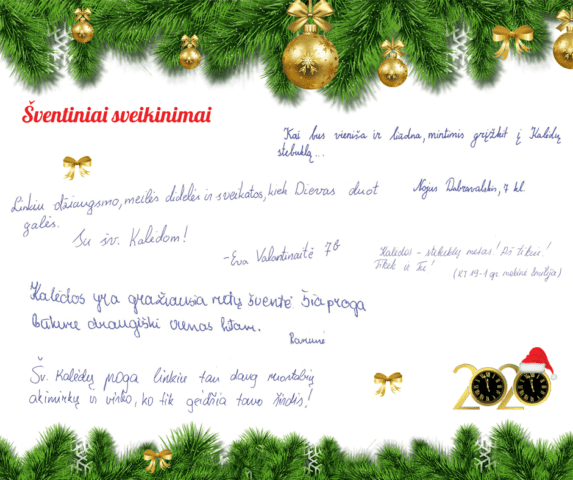 Šventiniai sveikinimai
Kai bus vieniša ir liūdna, mintimis grįžkit į Kalėdų
stebuklą...
Nojus Dubravalskis, 7 kl.
Linkiu džiaugsmo, meilės didelės ir sveikatos, kiek Dievas duot
galės.
Su šv. Kalėdom!
-Eva Valantinaitė 7b
Kalėdos - stebuklų metas! Aš tikiu!
Tikėk ir Tu!
(KJ 19-1 gr. mokinė Emilija)
Kalėdos yra gražiausia metų šventė Šia proga
būkime draugiški vienas kitam.
Ramunė
Šv. Kalėdų proga linkiu tau daug nuostabių
akimirkų ir visko, ko tik geidžia tavo širdis!
2020